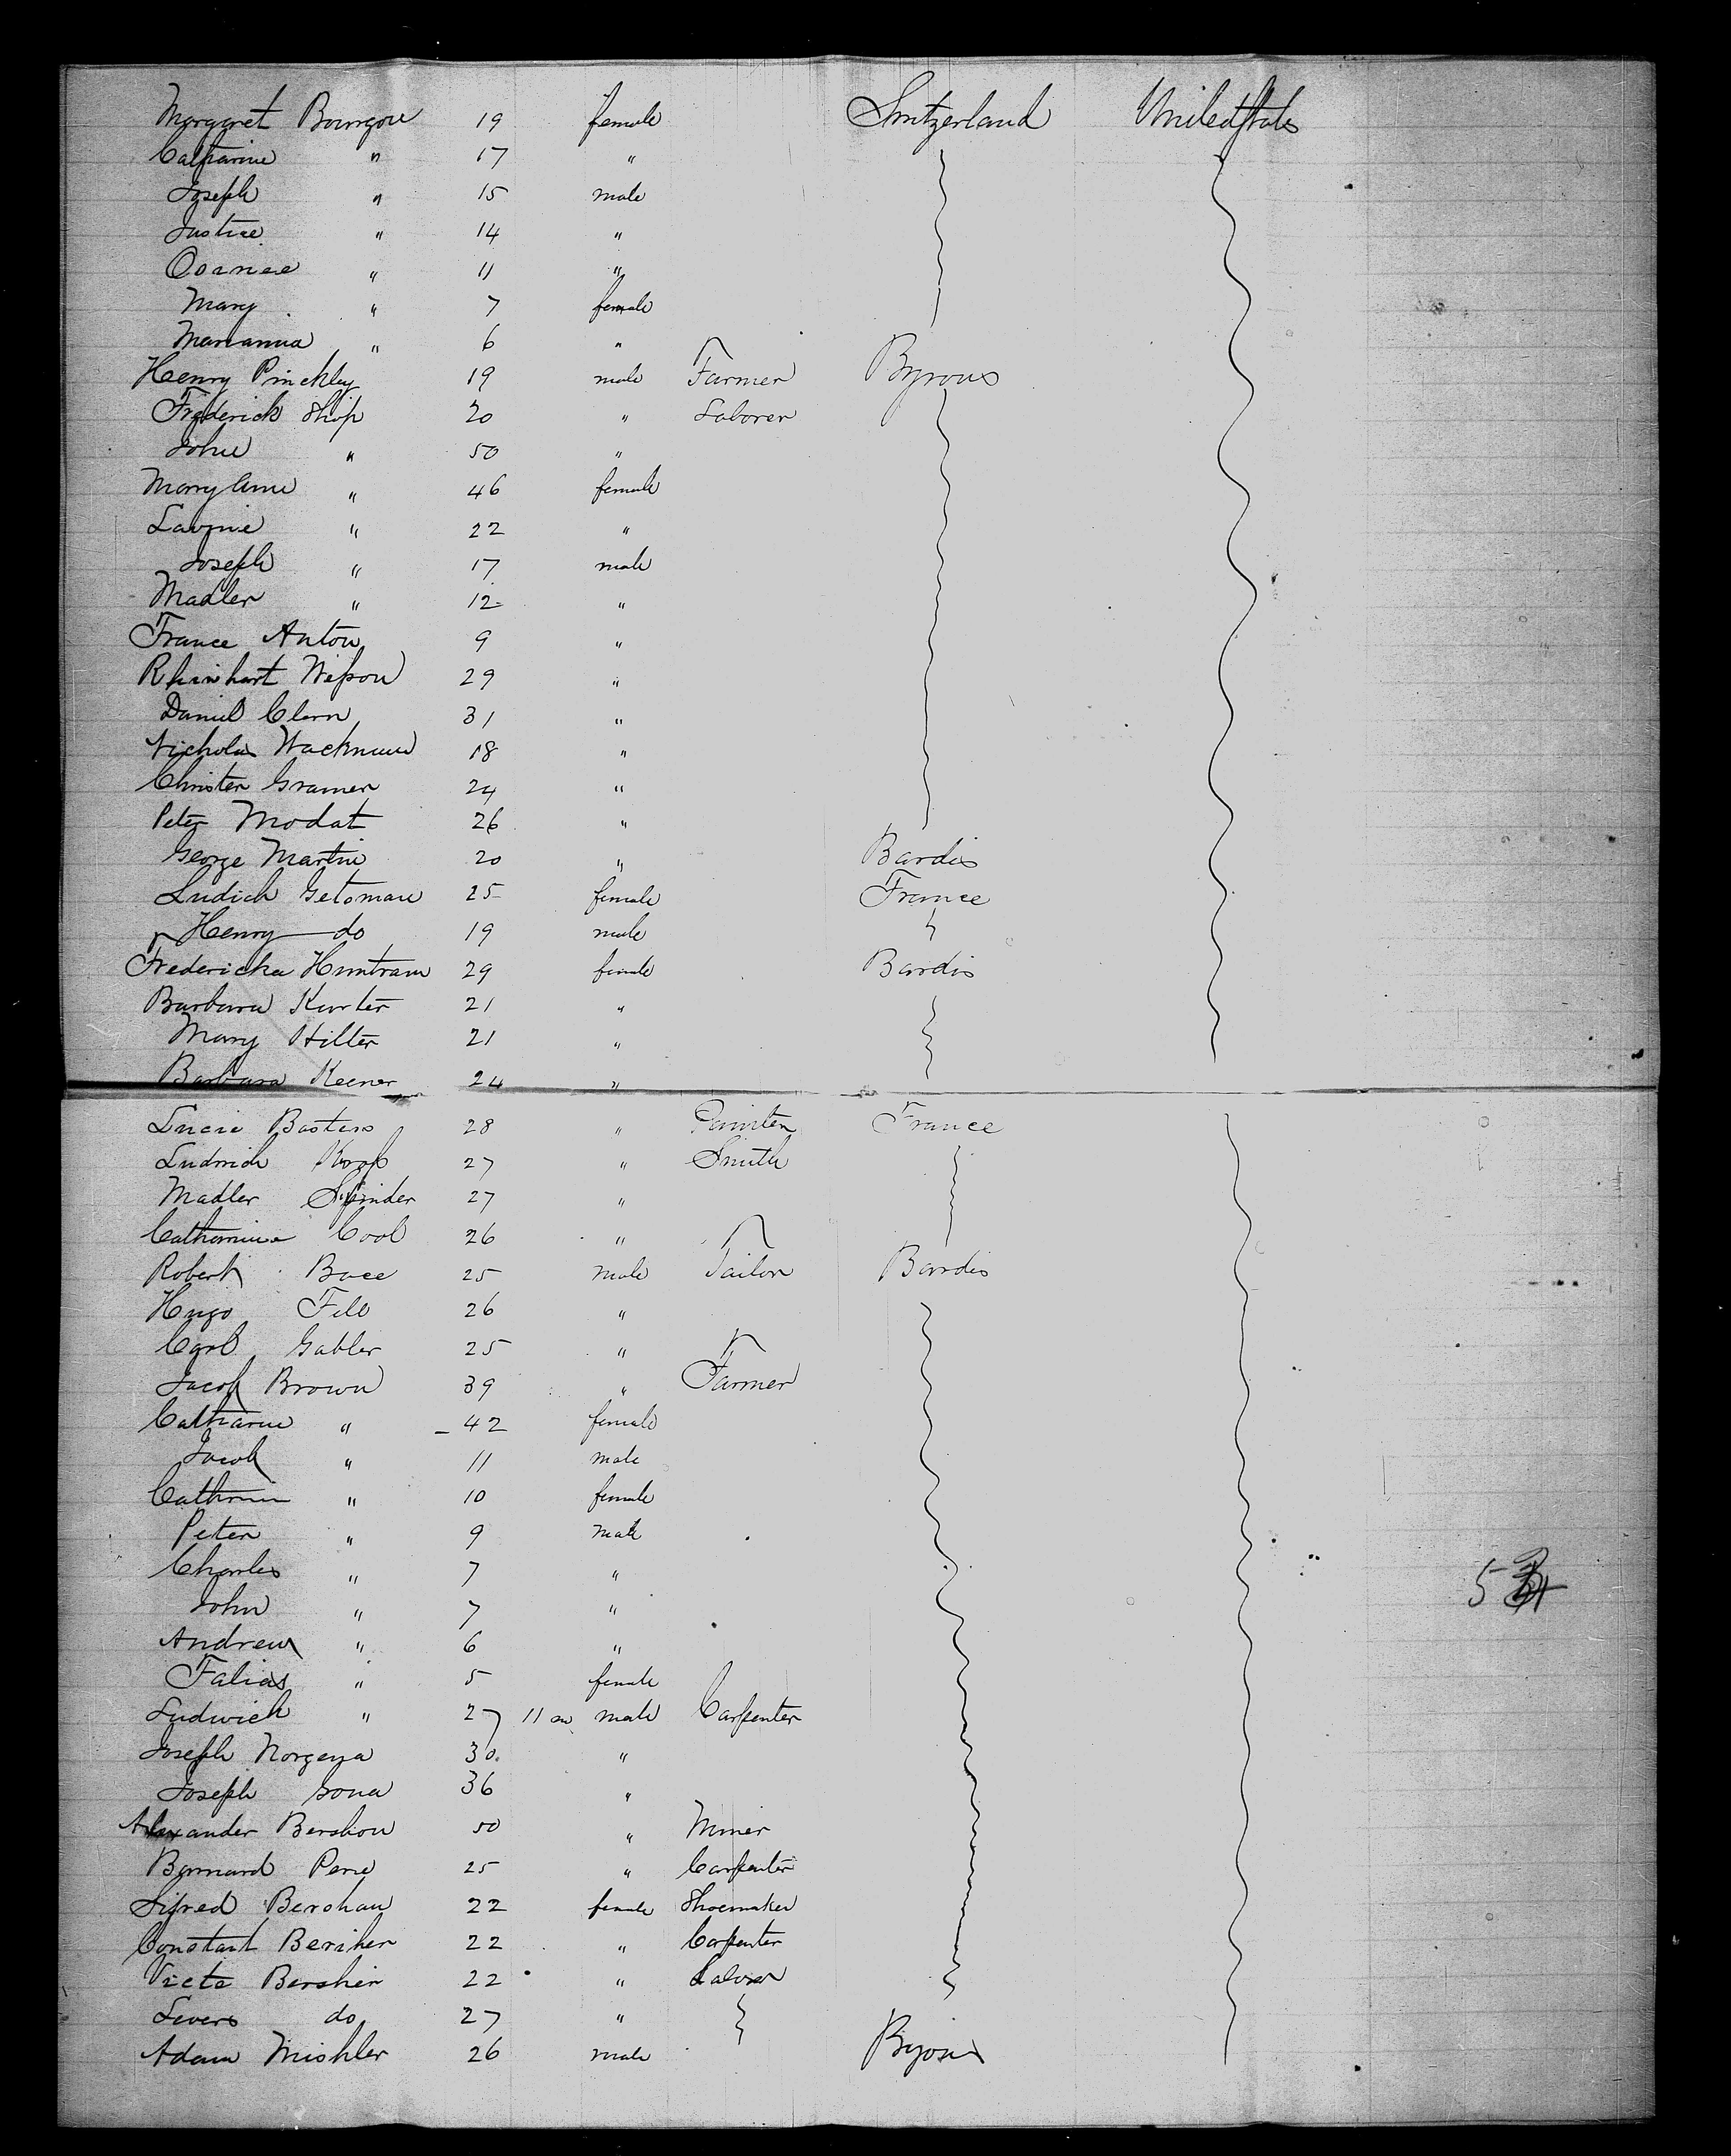 Margaret Bourgou 19 female Switzerland United States
Catharine " 17 "
Joseph " 15 male
Justice " 14 "
" 11 "
Mary " 7 female
Marianna " 6 "
Henry Pinckley 19 male Farmer Byrous
Frederick Ship 20 " Laborer
John " 50 "
Mary Anne " 46 female
Lavinie " 22 "
Joseph " 17 male
Madler " 12 "
France Anton 9 "
Rhinhart 29 "
Daniel Clern 31 "
Nicholas Wackmann 18 "
Christen Gramer 24 "
Peter Modat 26 "
George Martin 20 " Bardis
Ludich Getoman 25 female France
Henry do 19 male
Fredericka Huntram 29 female Bardis
Barbara Kurter 21 "
Mary Hilter 21 "
Barbara Keener 24 "
Lucie Basters 28 " Painter France
Ludwick 27 " Smith
Madler 27 "
Catharina Cool 26 "
Robert Bace 25 male Tailor Bardis
Hugo Fell 26 "
Carl Gabler 25 "
Jacob Brown 39 " Farmer
Catharine " 42 female
Jacob " 11 male
Cathrin " 10 female
Peter " 9 male
Charles " 7 "
John " 7 "
Andrew " 6 "
Falias " 5 female
Ludwich " 27 11 m male Carpenter
Joseph Norgena 30 "
Joseph Gona 36 "
Alexander Bershon 50 " Miner
Bernard Pere 25 " Carpenter
Sifred Bershau 22 female Shoemaker
Constant Beriher 22 " Carpenter
Victe Bershier 22 " Labor
Levers do 27 "
Adam Mishler 26 male Byous